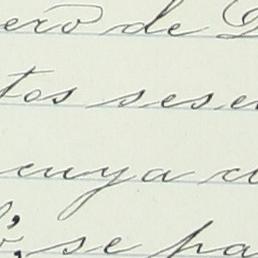 ero de
tos sesen
cuya c
se pa